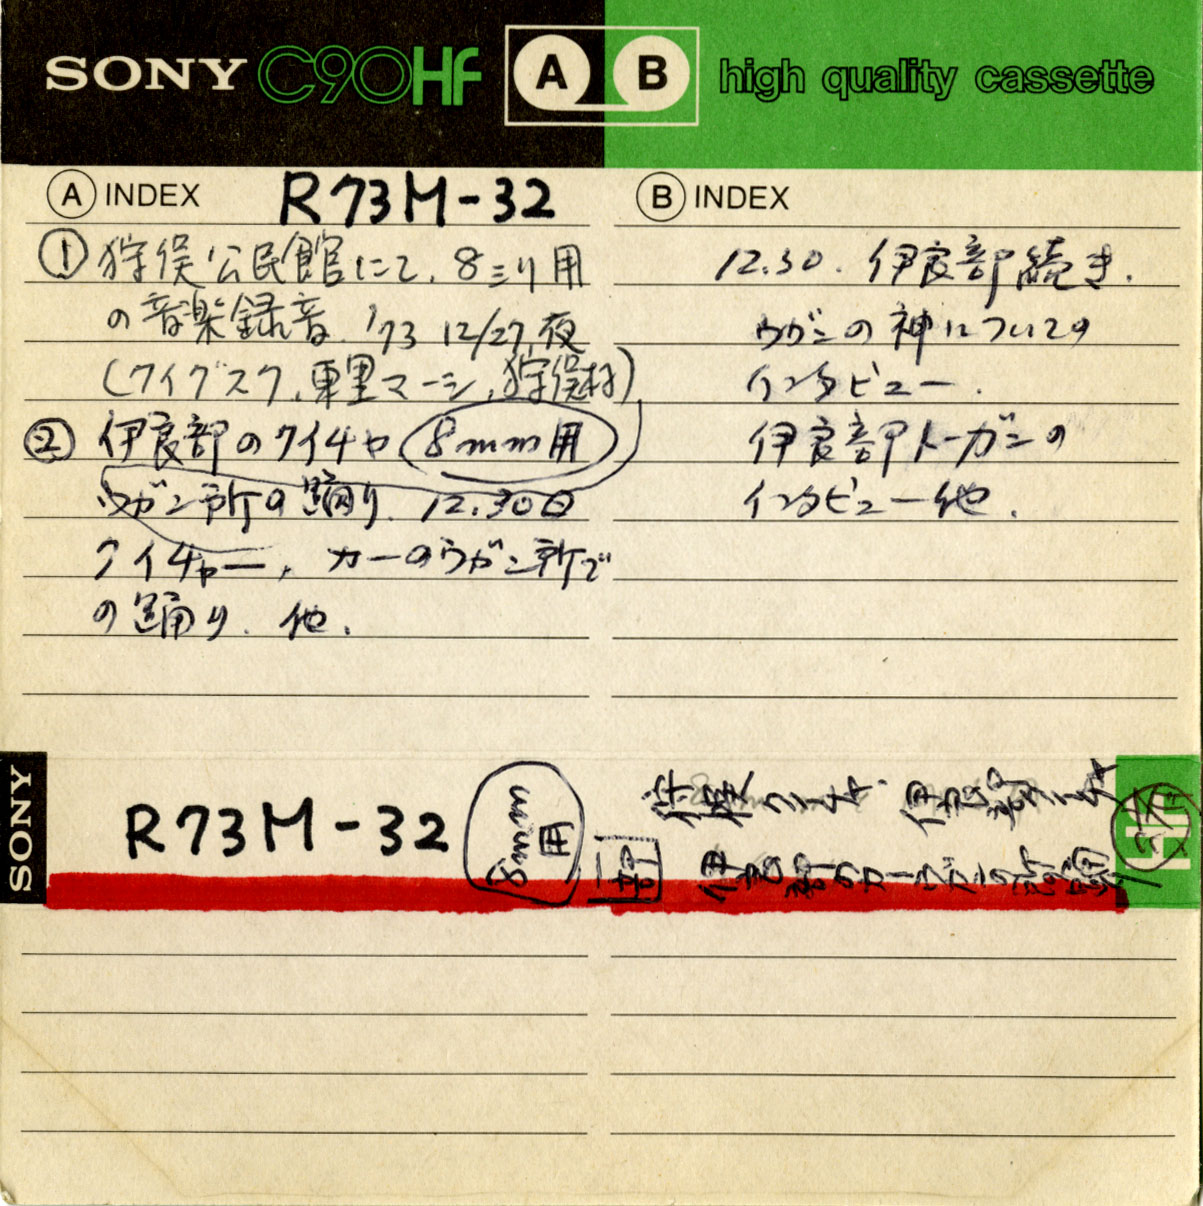 SONY C90Hf A B high quality cassette
A INDEX R73M-32
① 狩俣公民館にて、8ミリ用
の音楽録音. '73 12/27,夜
(クイグスク、東里マーシ、狩俣村)
② 伊良部のクイチャ 8mm用
ウガン所の踊り. 12.30日
クイチャー, カーのウガン所で
の踊り. 他.
B INDEX
12.30. 伊良部続き.
ウガンの神についての
インタビュー.
伊良部トーガンの
インタビュー他.
SONY
R73M-32
8mm用
狩俣クイチャ. 伊良部クイチャ
伊良部のカーウガンの